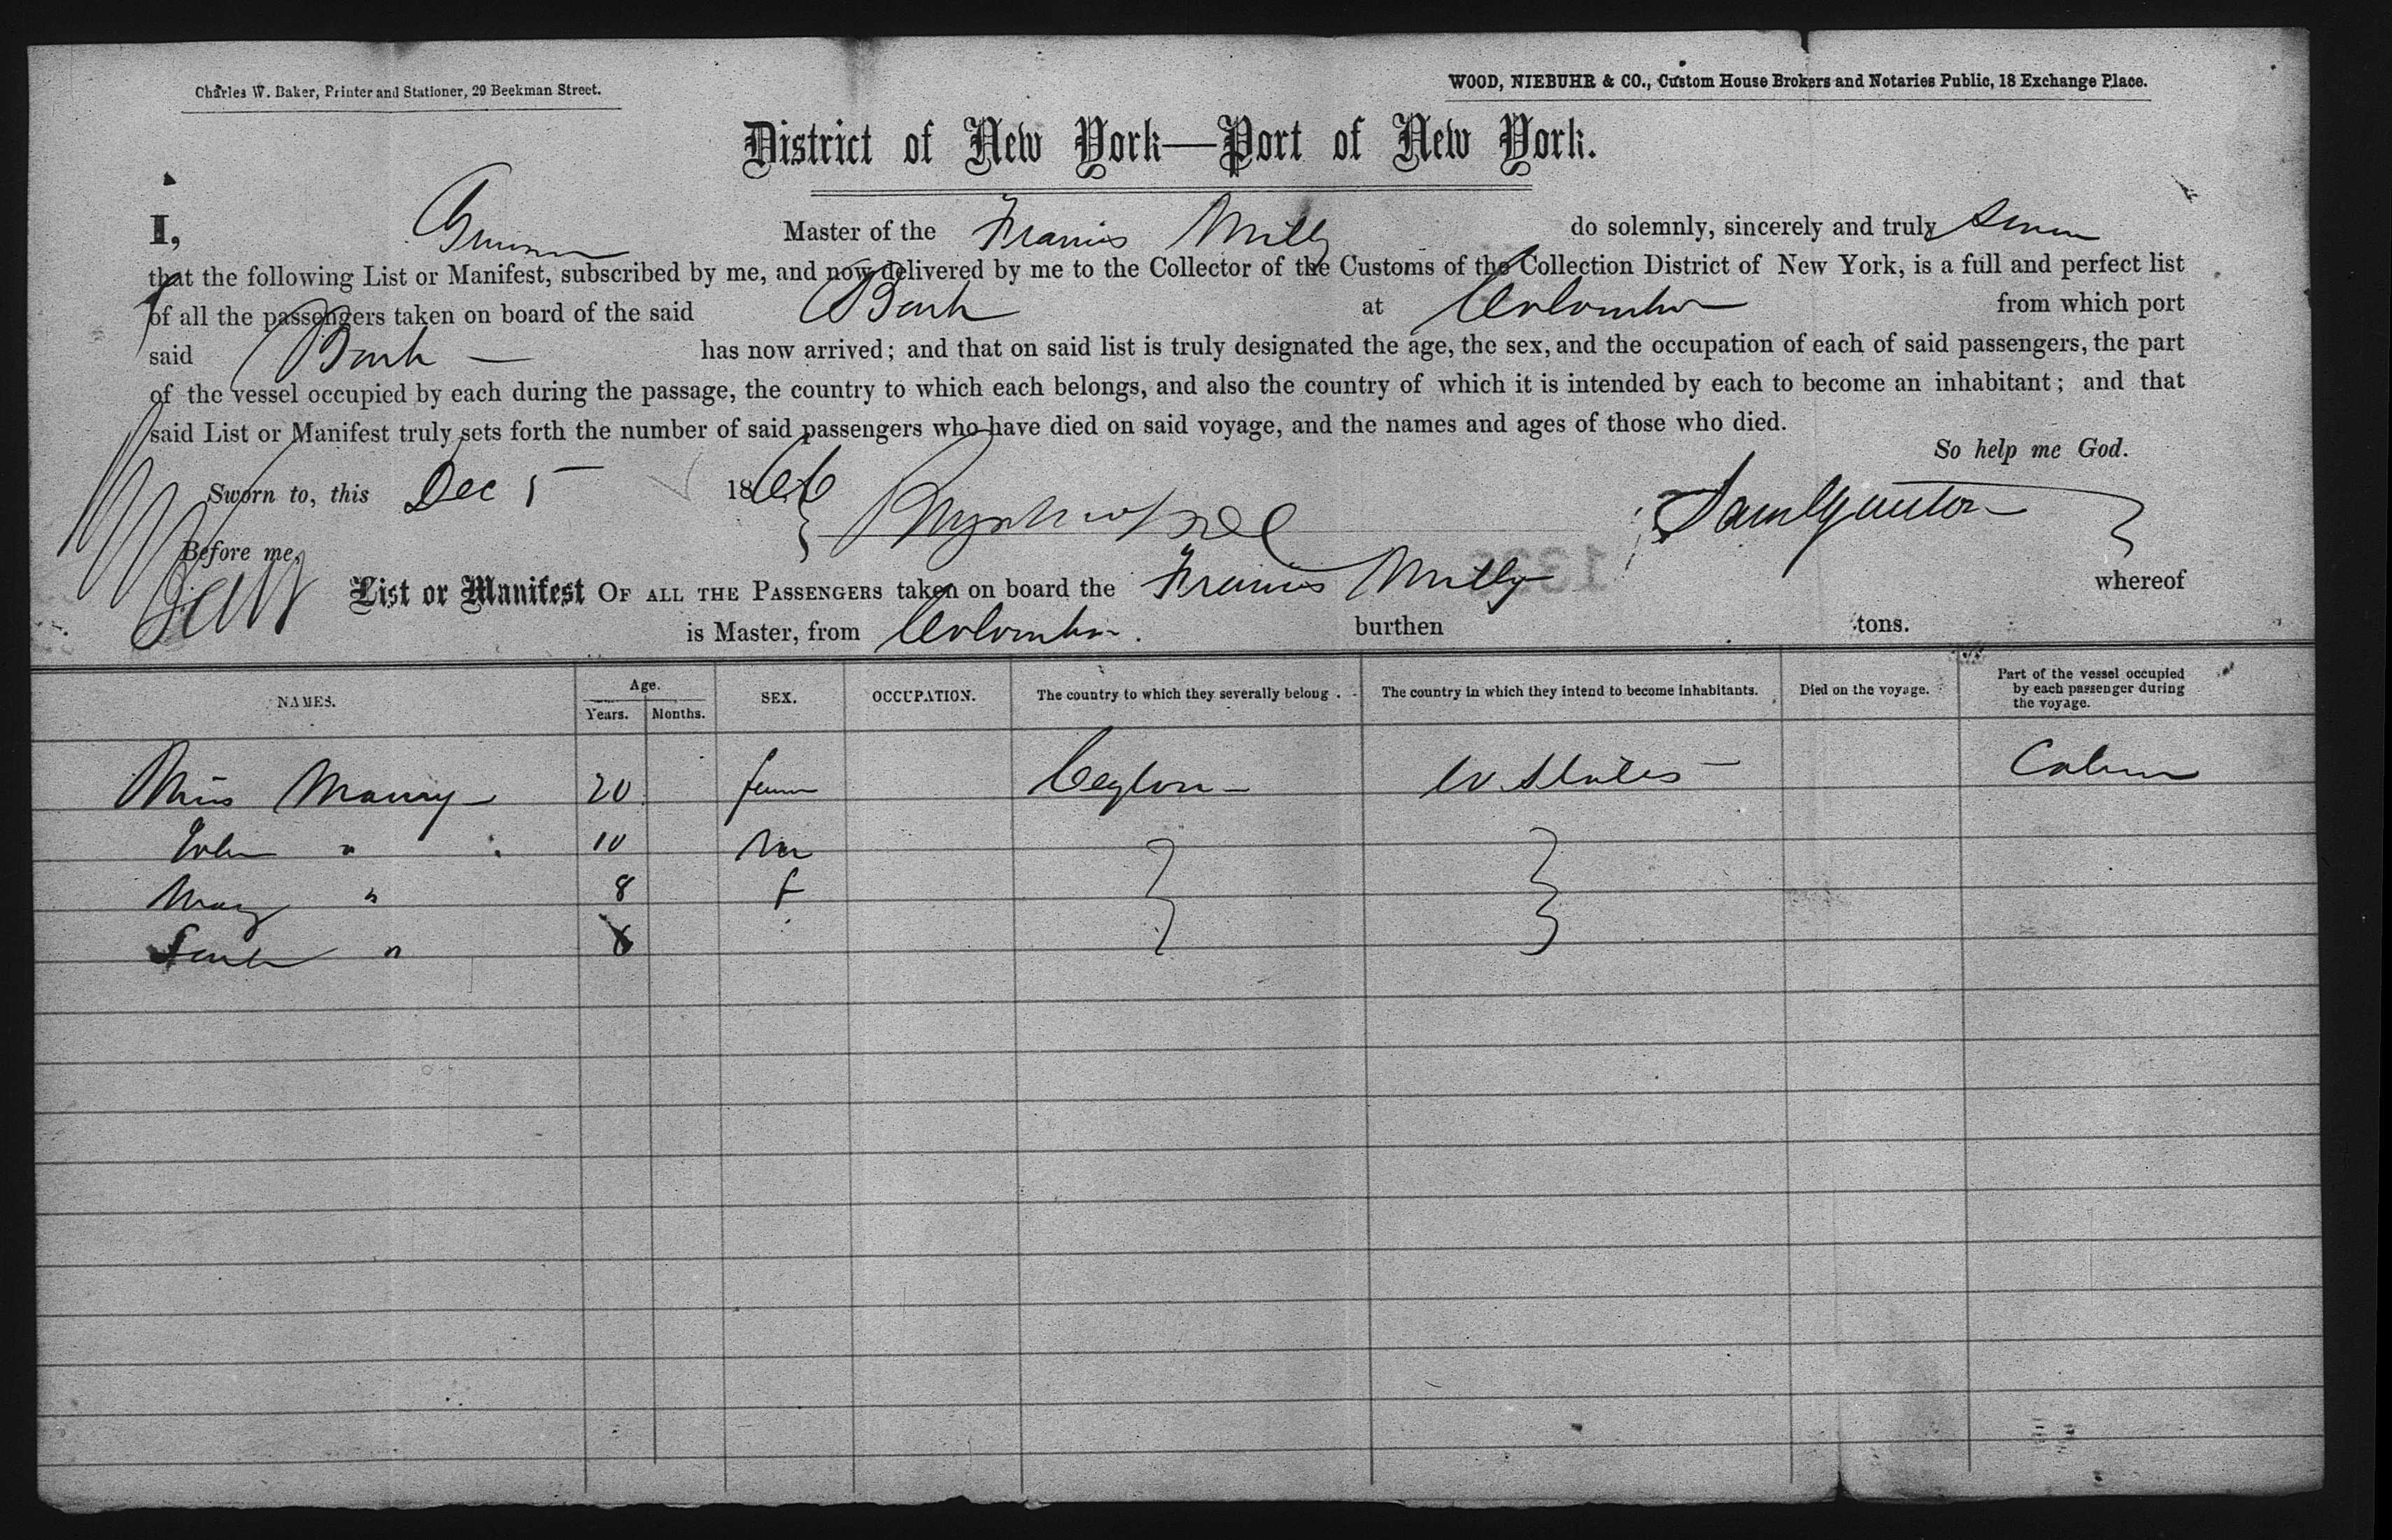 Charles W. Baker, Printer and Stationer, 29 Beekman Street.
WOOD, NIEBUHR & CO., Custom House Brokers and Notaries Public, 18 Exchange Place.
District of New York—Port of New York.
I, Master of the Francis Milly do solemnly, sincerely and truly swear
that the following List or Manifest, subscribed by me, and now delivered by me to the Collector of the Customs of the Collection District of New York, is a full and perfect list
of all the passengers taken on board of the said Bark at Colombo from which port
said Bark — has now arrived; and that on said list is truly designated the age, the sex, and the occupation of each of said passengers, the part
of the vessel occupied by each during the passage, the country to which each belongs, and also the country of which it is intended by each to become an inhabitant; and that
said List or Manifest truly sets forth the number of said passengers who have died on said voyage, and the names and ages of those who died.
So help me God.
Sworn to, this Dec 5 1866
Before me,
List or Manifest OF ALL THE PASSENGERS taken on board the Francis Milly whereof
is Master, from Colombo. burthen tons.
NAMES. Age. Years. Months. SEX. OCCUPATION. The country to which they severally belong. The country in which they intend to become inhabitants. Died on the voyage. Part of the vessel occupied by each passenger during the voyage.
Miss 20 Ceylon — U. States — Cabin
John " 10 m
Mary " 8 f
Sarah "